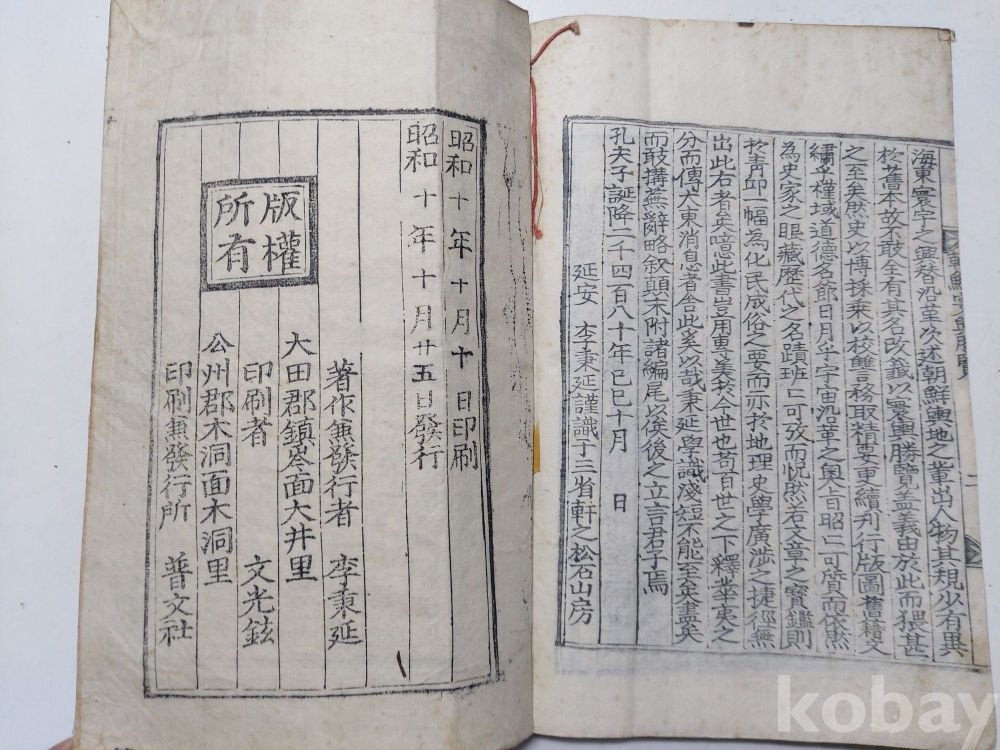 朝鮮寰輿勝覽
二
海東寰宇之興替沿革次述朝鮮輿地之輩出人物其規少有異
於舊本故不敢全有其名改籤以寰輿勝覽盖義由於此而猥甚
之至矣然史以博採乘以校讐務取精要更續刋行版圖舊積又
繡乎槿域道德名節日月乎宇宙沿革之奧旨昭二可質而依然
為史家之眼藏歷代之名蹟班二可攷而怳然若文章之寶鑑則
於靑邱一幅為化民成俗之要而亦於地理史學廣涉之捷徑無
出此右者矣噫此書豈用專美於今世也苟百世之下釋坐夷之
分而傳大東消息者舍此奚以哉秉延學識淺短不能至矣盡矣
而敢搆蕪辭略叙顛末附諸編尾以俟後之立言君子焉
孔夫子誕降二千四百八十年己巳十月 日
延安 李秉延謹識于三省軒之松石山房
昭和十年十月十日印刷
昭和十年十月廿五日發行
著作兼發行者 李秉延
大田郡鎭岑面大井里
印刷者 文光鉉
公州郡木洞面木洞里
印刷兼發行所 普文社
版權
所有
kobay